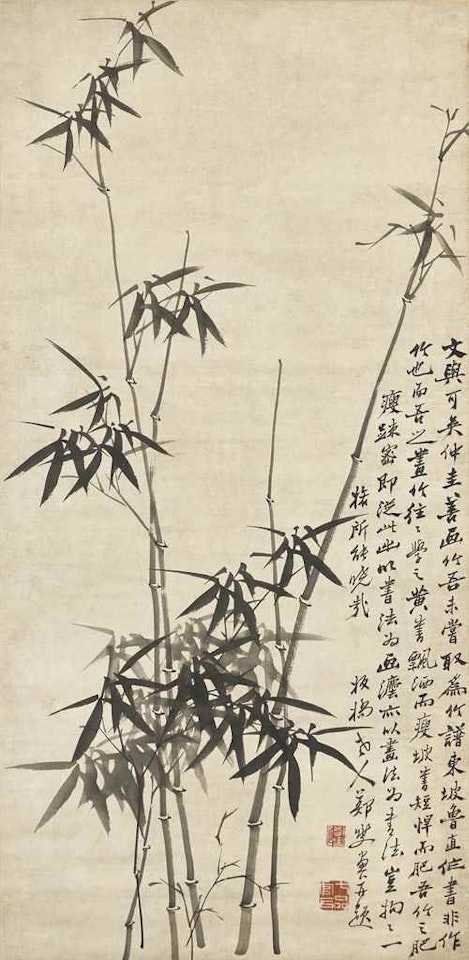 文與可吳仲圭善画竹吾未嘗取為竹譜東坡魯直作書非作
竹也而吾之畫竹往〻學之黄書飄洒而瘦坡書短悍而肥吾竹之肥
瘦踈密即從此以書法為画瀍亦以畫法為書法豈拘〻一
格所能晓哉 板橋老人鄭燮畫并題